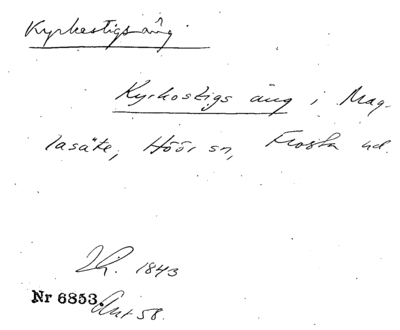 Kyrkestigsäng
Kyrkostigs äng i Mag-
lasäte, Höör sn, Frosta hd.
1843
Nr 6853.
Ant 58.